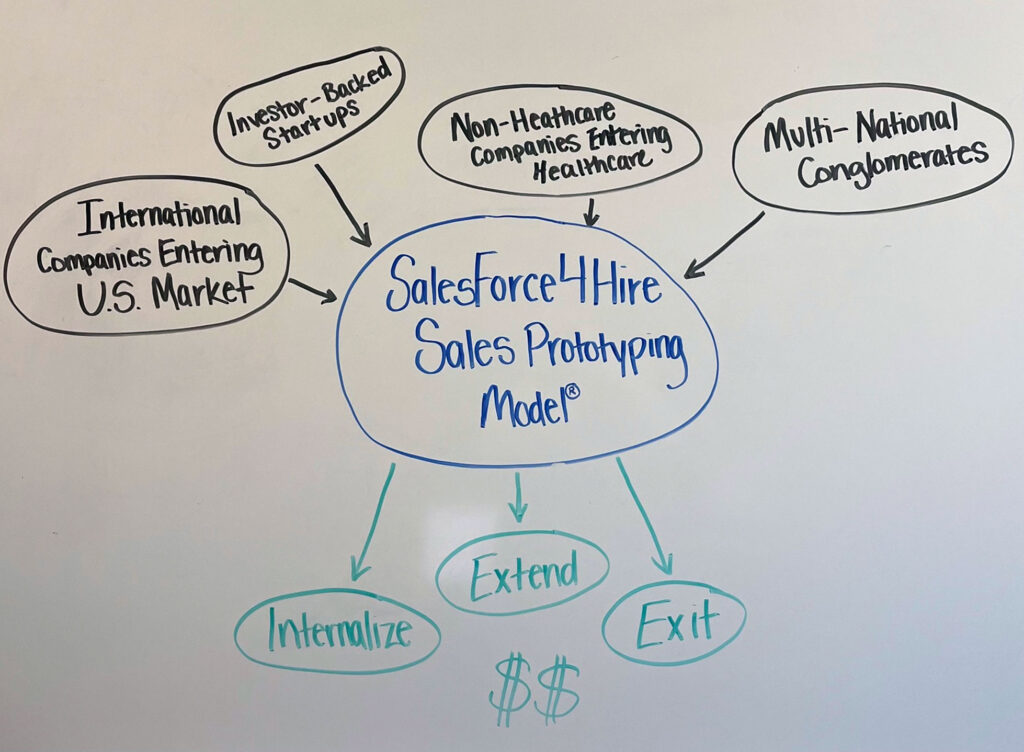 Investor-Backed
Startups
Non-Heathcare
Companies Entering
Healthcare
Multi-National
Conglomerates
International
Companies Entering
U.S. Market
SalesForce4Hire
Sales Prototyping
Model®
Internalize
Extend
Exit
$$